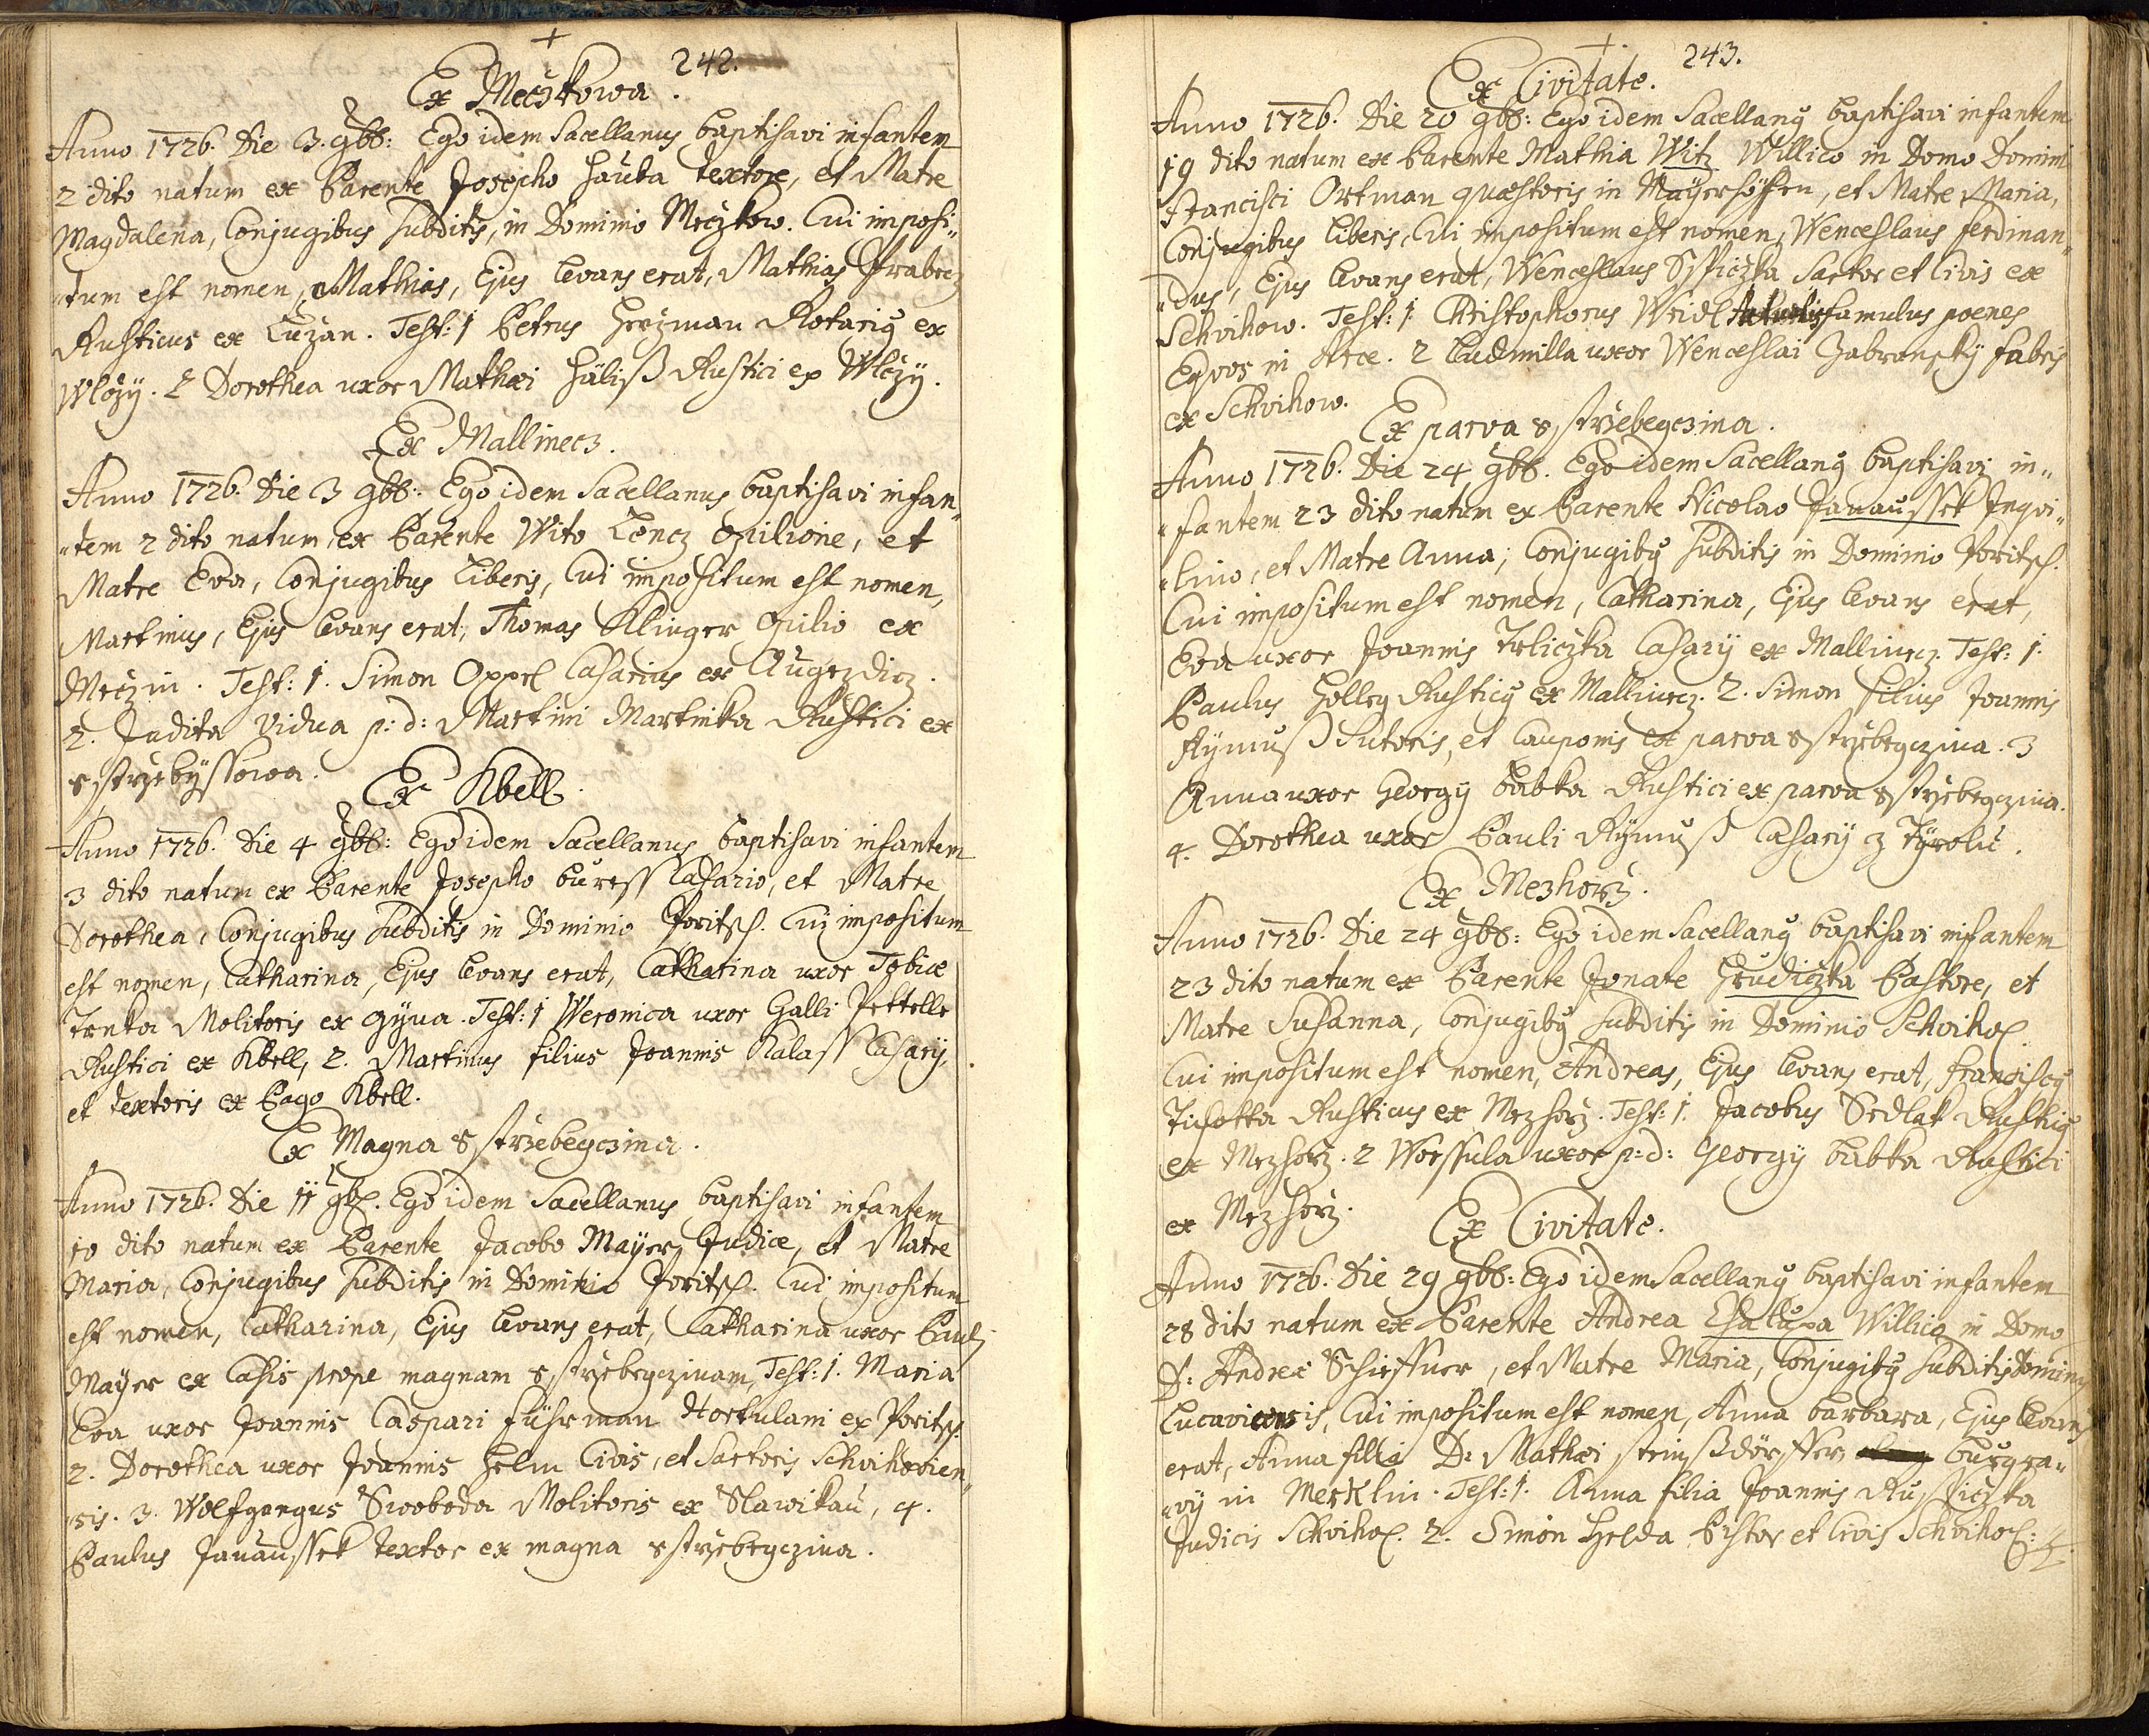 242.
Ex Meczkowa.
Anno 1726. Die 3. 9bb: Ego idem Sacellanus baptisavi infantem
2 dito natum ex Parente Josepho Hauba textore, et Matre
Magdalena, Conjugibus subditis, in Dominio Meczkow. Cui imposi„
„tum est nomen, Mathias, Ejus levans erat, Mathias
Rusticus ex Luzan. Test: 1 Petrus Herzman Rotarig ex
Wlczy. 2 Dorothea uxor Mathæi Häliß Rustici ex Wlczÿ.
Ex Mallinecz.
Anno 1726. Die 3 9bb: Ego idem Sacellanus baptisavi infan„
„tem 2 dito natum, ex Parente Wito Lencz opilione, et
Matre Eva, Conjugibus Liberis, Cui impositum est nomen,
Martinus, Ejus levans erat, Thomas Klinger Opilio ex
Meczin. Test: 1. Simon Oppel Casarius ex Augezdicz.
2. Judita vidua p: d: Martini Martinka Rustici ex
Strzebÿssowa.
Ex Kbell.
Anno 1726. Die 4 9bb: Ego idem Sacellanus baptisavi infantem
3 dito natum ex Parente Josepho Buress Casario, et Matre
Dorothea, Conjugibus subditis in Dominio Poritsch. Cui impositum
est nomen, Catharina, Ejus levans erat, Catharina uxor Tobiæ
Trnka Molitoris ex Gÿna. Test: 1 Weronica uxor Galli Pettelle
Rustici ex Kbell, 2. Martinus filius Joannis Kalass Casarÿ,
et textoris ex Pago Kbell.
Ex Magna Strzebegczina.
Anno 1726. Die 11 9b. Ego idem Sacellanus baptisavi infantem
10 dito natum ex Parente Jacobo Maÿer, Judice, et Matre
Maria, Conjugibus subditis in Dominio Poritsch. Cui impositum
est nomen, Catharina, Ejus levans erat, Catharina uxor Pauli
Maÿer ex Casis prope magnam Strzebegczinam, Test: 1. Maria
Eva uxor Joannis Caspari Führman Hortulani ex Poritsch.
2. Dorothea uxor Joannis Helm Civis, et Sartoris Schvihovien„
„sis. 3. Wolfgangus Swoboda Molitoris ex Slawikau, 4.
Paulus Janaussek textor ex magna Strzebegczina.
243.
Ex Civitate.
Anno 1726. Die 20 9bb: Ego idem Sacellang baptisavi infantem
19 dito natum ex Parente Mathia Witz Willico in Domo Domini
Francisci Ortman quæstoris in Maÿerhöffen, et Matre Maria,
Conjugibus liberis, Cui impositum est nomen, Wenceslaus Ferdinan„
„dus, Ejus levans erat, Wenceslaus Sspiczka Sartor et Civis ex
Schvihow. Test: 1 Christophorus Weidl famulus poenes
Eqvos in Arce. 2 Ludmilla uxor Wenceslai Zabranskÿ fabri
ex Schvihow.
Ex parva Strzebegczina.
Anno 1726. Die 24 9bb. Ego idem Sacellang baptisavi in„
„fantem 23 dito natum ex Parente Nicolao Janaussek Inqvi„
„lino, et Matre Anna, Conjugibg subditis in Dominio Poritsch.
Cui impositum est nomen, Catharina, Ejus levans erat,
Eva uxor Joannis Trliczka Casarÿ ex Mallinecz. Test: 1.
Paulus Holleg Rusticg ex Mallinecz. 2. Simon filius Joannis
Rÿmuß Sutoris, et Cauponis ex parva Strzebegczina. 3
Anna uxor Georgÿ Babka Rustici ex parva Strzebegczina.
4. Dorothea uxor Pauli Rÿmuß Casarÿ z Tÿrolu.
Ex Mezhorz.
Anno 1726. Die 24 9bb: Ego idem Sacellang baptisavi infantem
23 dito natum ex Parente Jonate Hrudiczka Pastore, et
Matre Susanna, Conjugibg subditis in Dominio Schvihof.
Cui impositum est nomen, Andreas, Ejus levans erat, Franciscg
Tichotka Rusticus ex Mezhorz. Test: 1. Jacobus Sedlak Rusticg
ex Mezhorz. 2 Worssula uxor p: d: Georgÿ Babka Rustici
ex Mezhorz.
Ex Civitate.
Anno 1726. Die 29 9bb: Ego idem Sacellang baptisavi infantem
28 dito natum ex Parente Andrea Chalupa Willico in Domo
D: Andreæ Schieffner, et Matre Maria, Conjugibg subditis Dominij
Lucavicensis, Cui impositum est nomen, Anna Barbara, Ejus levans
erat, Anna filia D: Mathæi Steinßdörffer, Burgra„
„vÿ in Merklin. Test: 1. Anna filia Joannis Rusticzka
Judicis Schvihof. 2. Simon Helda Pistor et Civis Schvihof: